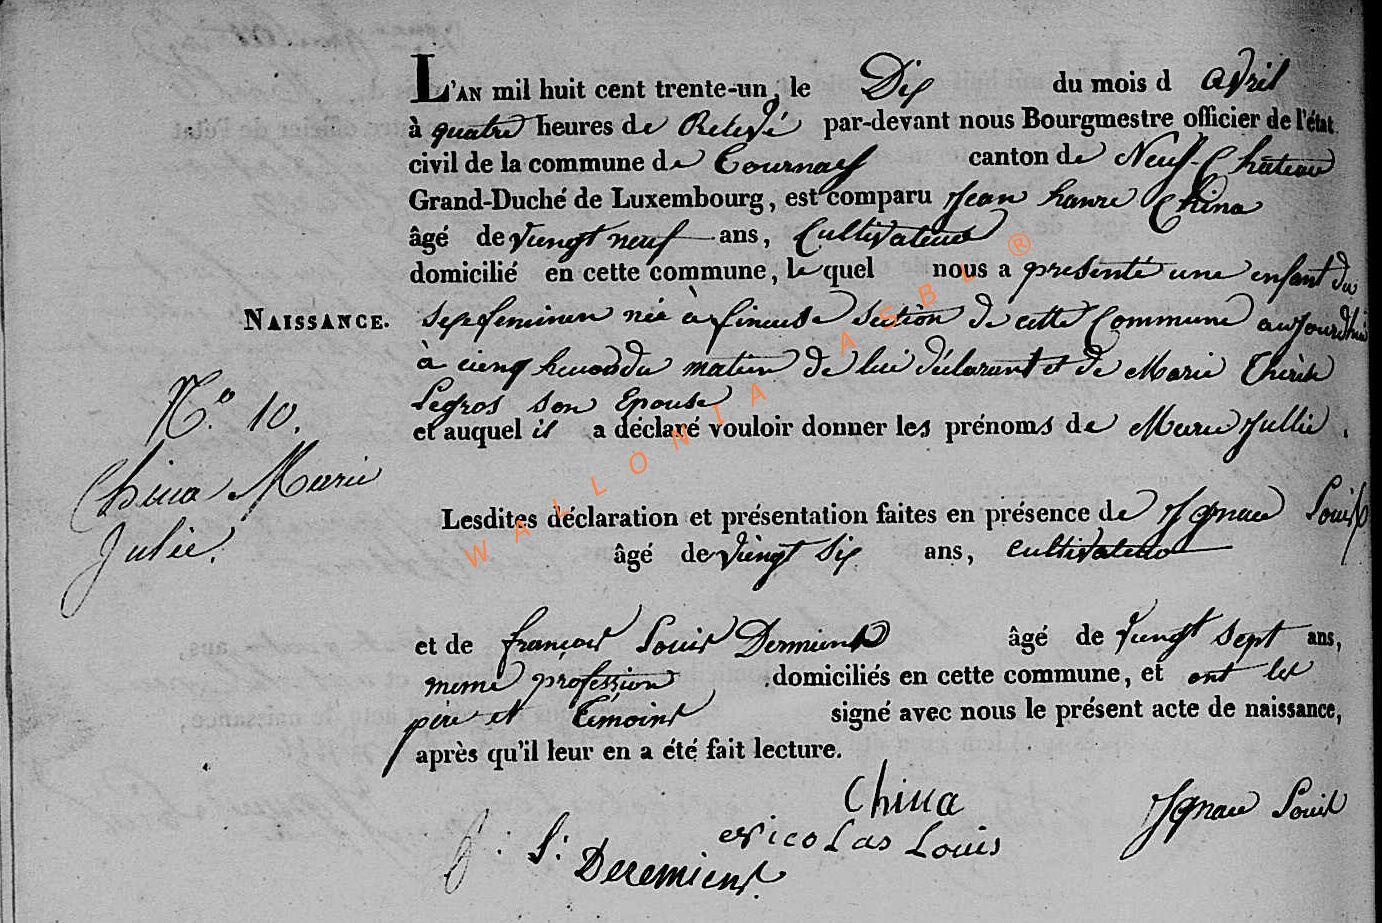 L'AN mil huit cent trente-un, le Dix du mois d avril
à quatre heures de Relevé par-devant nous Bourgmestre officier de l'état
civil de la commune de Tournay canton de Neuf-Château
Grand-Duché de Luxembourg, est comparu Jean henri China
âgé de Vingt neuf ans, Cultivateur
domicilié en cette commune, le quel nous a presenté une enfant du
NAISSANCE.
sexe feminin née à fineuse section de cette Commune aujourdhui
à cinq heures du matin de lui déclarant et de Marie Thérèse
Legros son Epouse
et auquel il a déclaré vouloir donner les prénoms de Marie Jullie.
N.o 10.
China Marie
Julie.
Lesdites déclaration et présentation faites en présence de Ignace Louis
âgé de Vingt six ans, cultivateur
et de françois Louis Dermience âgé de Vingt sept ans,
meme profession domiciliés en cette commune, et ont les
père et temoins signé avec nous le présent acte de naissance,
après qu'il leur en a été fait lecture.
China
Ignace Louis
Nicolas Louis
f. L. Deremience
WALLONIA ASBL ®